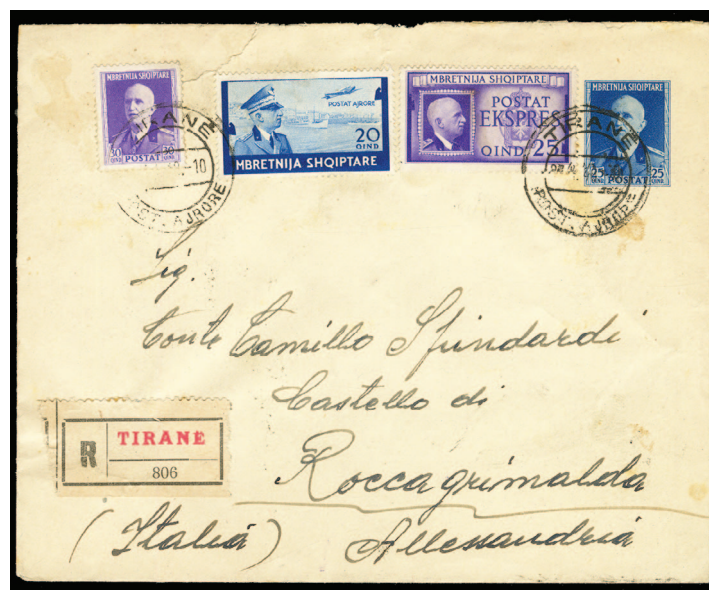 MBRETNIJA SHQIPTARE
30 30
QIND QIND
POSTAT
POSTAT AJRORE
20
QIND
MBRETNIJA SHQIPTARE
MBRETNIJA SHQIPTARE
POSTAT
EKSPRES
QIND 25
MBRETNIJA SHQIPTARE
25 25
QIND QIND
POSTAT
TIRANË
POST. AJRORE
TIRANË
POST. AJRORE
Sig.
Conte Camillo Spindardi
Castello di
Roccagrimalda
(Italia) Allessandria
R
TIRANË
806